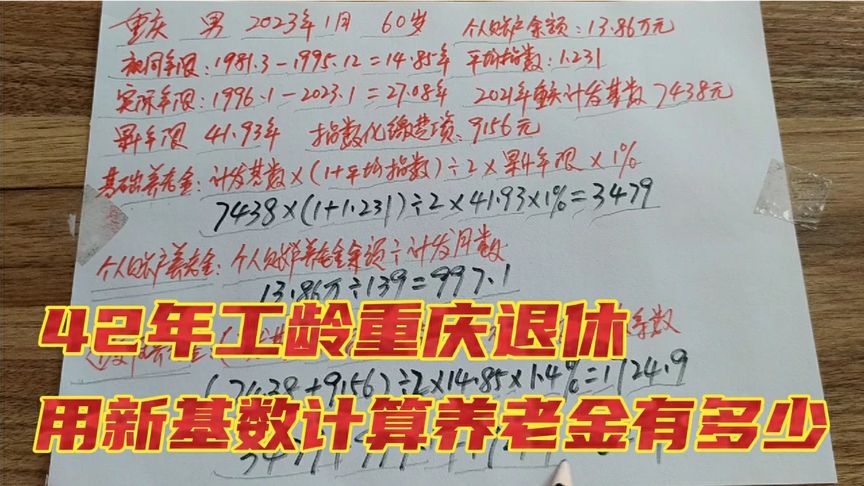 重庆 男 2023年1月 60岁 个人账户余额:13.86万元
视同年限:1981.3-1995.12=14.85年 平均指数:1.231
实际年限:1996.1-2023.1=27.08年 2021年重庆计发基数7438元
累计年限 41.93年 指数化缴费工资:9156元
基础养老金:计发基数×(1+平均指数)÷2×累计年限×1%
7438×(1+1.231)÷2×41.93×1%=3479
个人账户养老金:个人账户养老金余额÷计发月数
13.86万÷139=997.1
42年工龄重庆退休
系数
(7438+9156)÷2×14.85×1.4%=1724.9
用新基数计算养老金有多少